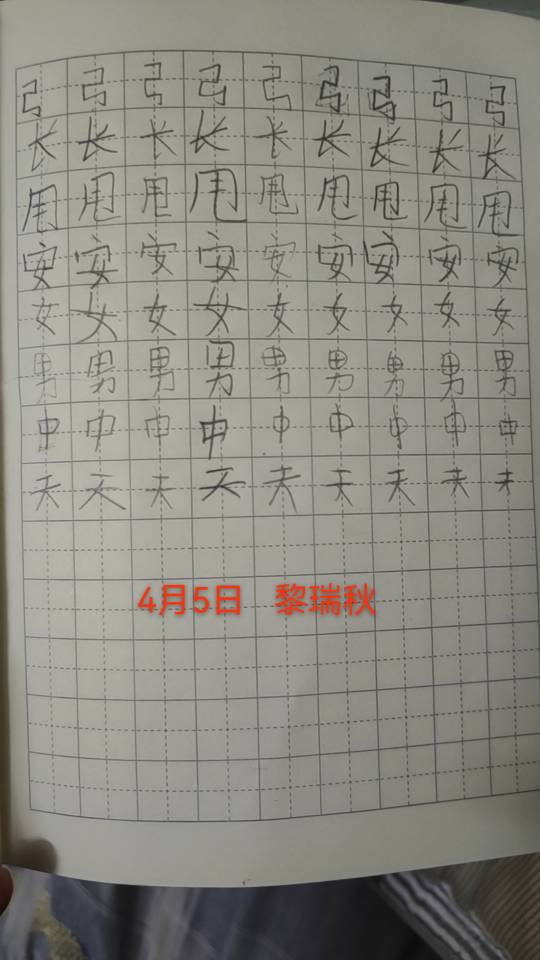 弓 弓 弓 弓 弓 弓 弓 弓 弓
长 长 长 长 长 长 长 长 长
甩 甩 甩 甩 甩 甩 甩 甩 甩
安 安 安 安 安 安 安 安 安
女 女 女 女 女 女 女 女 女
男 男 男 男 男 男 男 男 男
中 中 中 中 中 中 中 中 中
天 天 夫 天 夫 天 天 夫 夫
4月5日 黎瑞秋